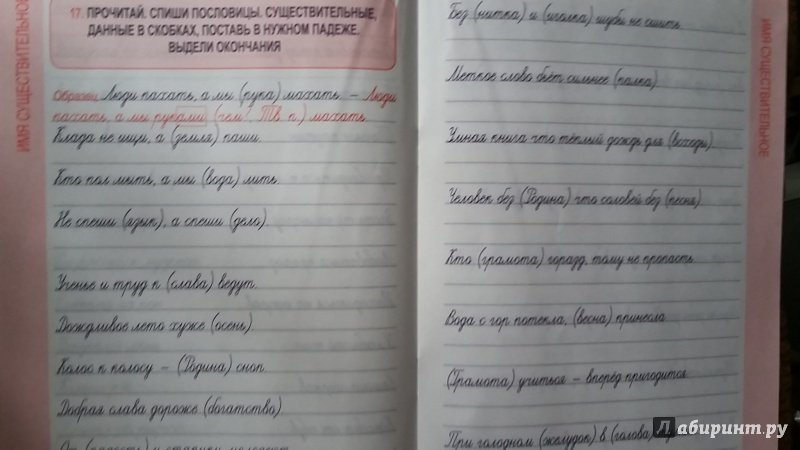 ИМЯ СУЩЕСТВИТЕЛЬНОЕ
17. ПРОЧИТАЙ. СПИШИ ПОСЛОВИЦЫ. СУЩЕСТВИТЕЛЬНЫЕ,
ДАННЫЕ В СКОБКАХ, ПОСТАВЬ В НУЖНОМ ПАДЕЖЕ.
ВЫДЕЛИ ОКОНЧАНИЯ
Образец. Люди пахать, а мы (рука) махать. – Люди
пахать, а мы руками (чем? Тв. п.) махать.
Клада не ищи, а (земля) паши.
Кто пол мыть, а мы (вода) лить.
Не спеши (язык), а спеши (дело).
Ученье и труд к (слава) ведут.
Дождливое лето хуже (осень).
Колос к колосу – (Родина) сноп.
Добрая слава дороже (богатство).
От (радость) и старики молодеют.
Без (нитка) и (иголка) шубы не сшить.
Меткое слово бьёт сильнее (палка).
Умная книга что тёплый дождь для (всходы).
Человек без (Родина) что соловей без (песня).
Кто (грамота) горазд, тому не пропасть.
Вода с гор потекла, (весна) принесла.
(Грамота) учиться – вперёд пригодится.
При голодном (желудок) в (голова)
ИМЯ СУЩЕСТВИТЕЛЬНОЕ
Лабиринт.ру